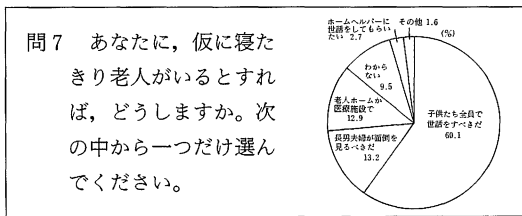 問7 あなたに，仮に寝た
きり老人がいるとすれ
ば，どうしますか。次
の中から一つだけ選ん
でください。
ホームヘルパーに
世話をしてもらい
たい 2.7
その他 1.6
(%)
わから
ない
9.5
老人ホームか
医療施設で
12.9
長男夫婦が面倒を
見るべきだ
13.2
子供たち全員で
世話をすべきだ
60.1